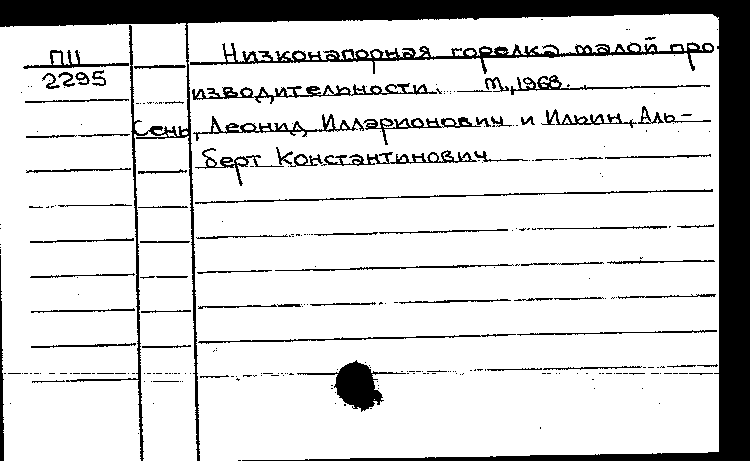 П11 Низконапорная горелка малой про-
2295 изводительности. М., 1968.
Сень, Леонид Илларионович и Ильин, Аль-
берт Константинович